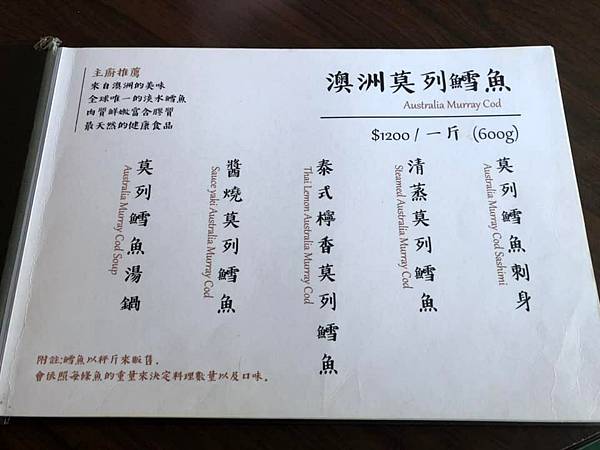 澳洲莫列鱈魚
Australia Murray Cod
$1200 / 一斤 (600g)
主廚推薦
來自澳洲的美味
全球唯一的淡水鱈魚
肉質鮮嫩富含膠質
最天然的健康食品
莫列鱈魚刺身
Australia Murray Cod Sashimi
清蒸莫列鱈魚
Steamed Australia Murray Cod
泰式檸香莫列鱈魚
Thai Lemon Australia Murray Cod
醬燒莫列鱈魚
Sauce yaki Australia Murray Cod
莫列鱈魚湯鍋
Australia Murray Cod Soup
附註:鱈魚以秤斤來販售。
會依照每條魚的重量來決定料理數量以及口味。